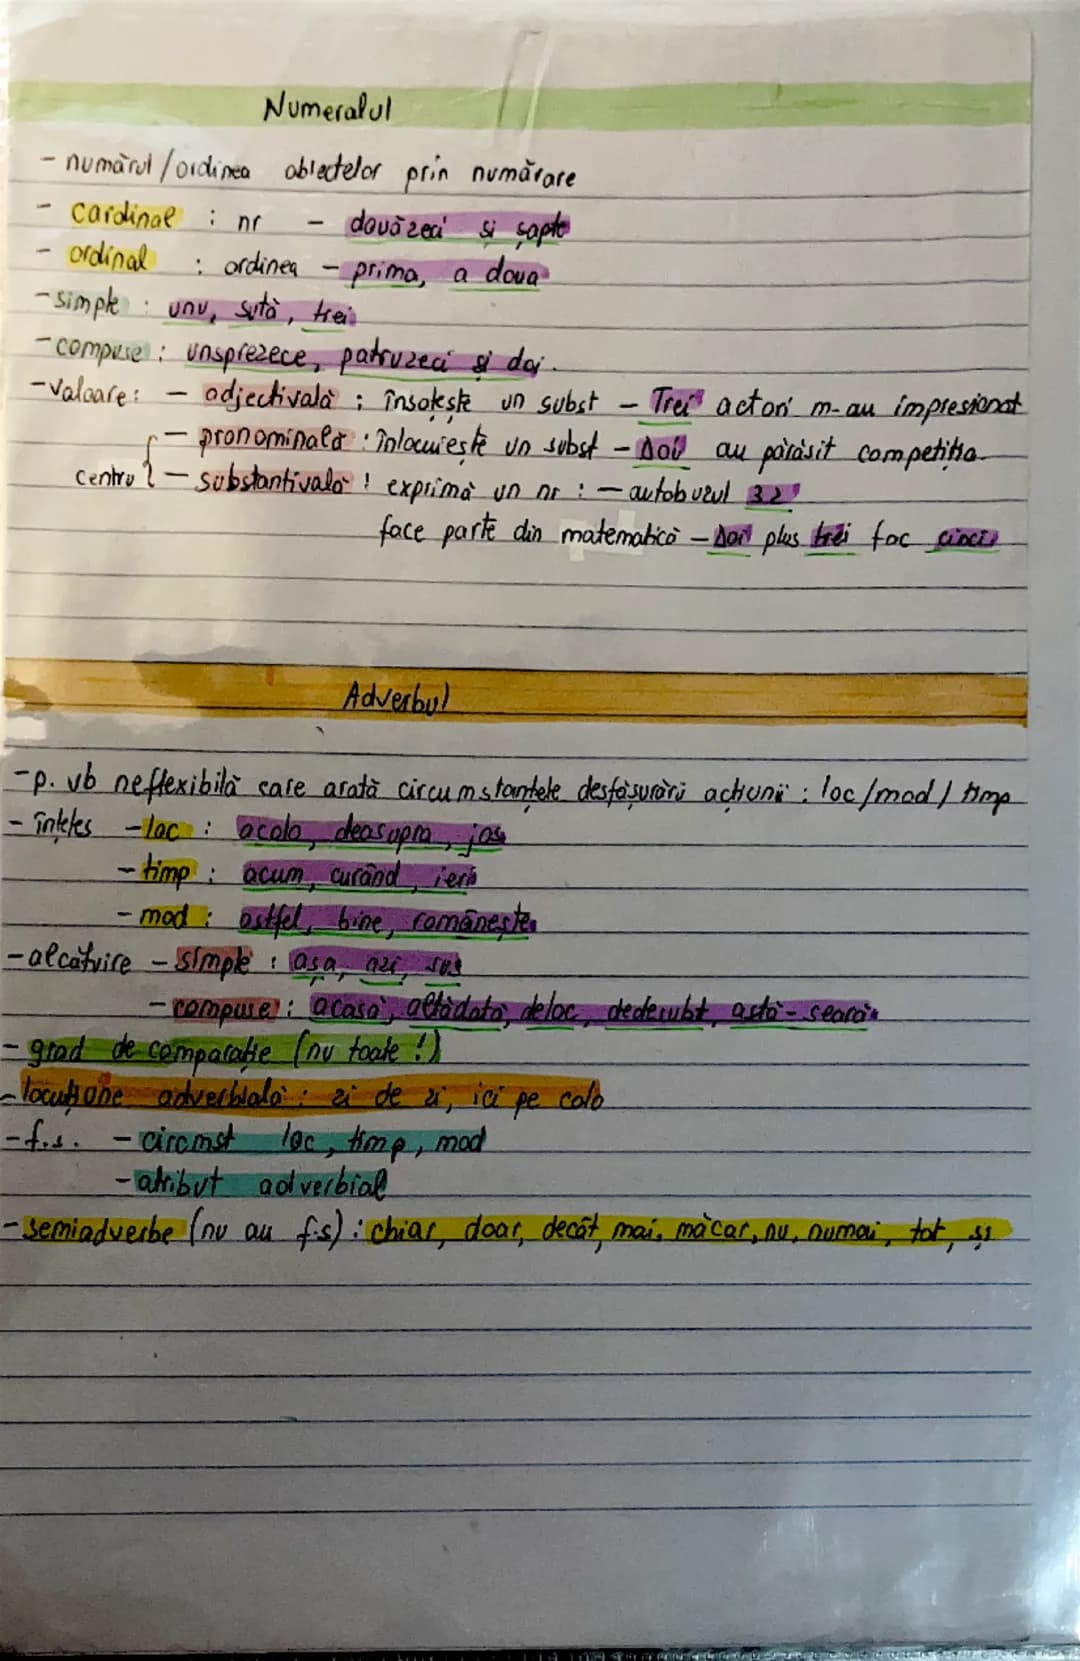 Numeralul
- numărul / ordinea obiectelor prin numărare
- cardinal : nr - douăzeci si șapte
- ordinal : ordinea - prima, a doua
- simple : unu, sută, trei
- compuse : unsprezece, patruzeci și doi.
- valoare : - adjectivală : însoțește un subst - Trei actori m-au impresionat
- pronominală : înlocuiește un subst - Doi au părăsit competiția.
centru { - substantivală : exprimă un nr : - autobuzul 32
face parte din matematică - Doi plus trei fac cinci
Adverbul
- p. vb neflexibilă care arată circumstanțele desfășurării acțiunii : loc / mod / timp
- înțeles - loc : acolo, deasupra, jos
- timp : acum, curând, ieri
- mod : astfel, bine, românește.
- alcătuire - simple : așa, azi, sus
- compuse : acasă, altădată, deloc, dedesubt, astă-seară
- grad de comparație (nu toate !)
- locuțiune adverbială : zi de zi, ici pe colo
- f.s. - circmst loc, timp, mod
- atribut adverbial
- semiadverbe (nu au f.s) : chiar, doar, decât, mai, măcar, nu, numai, tot, și